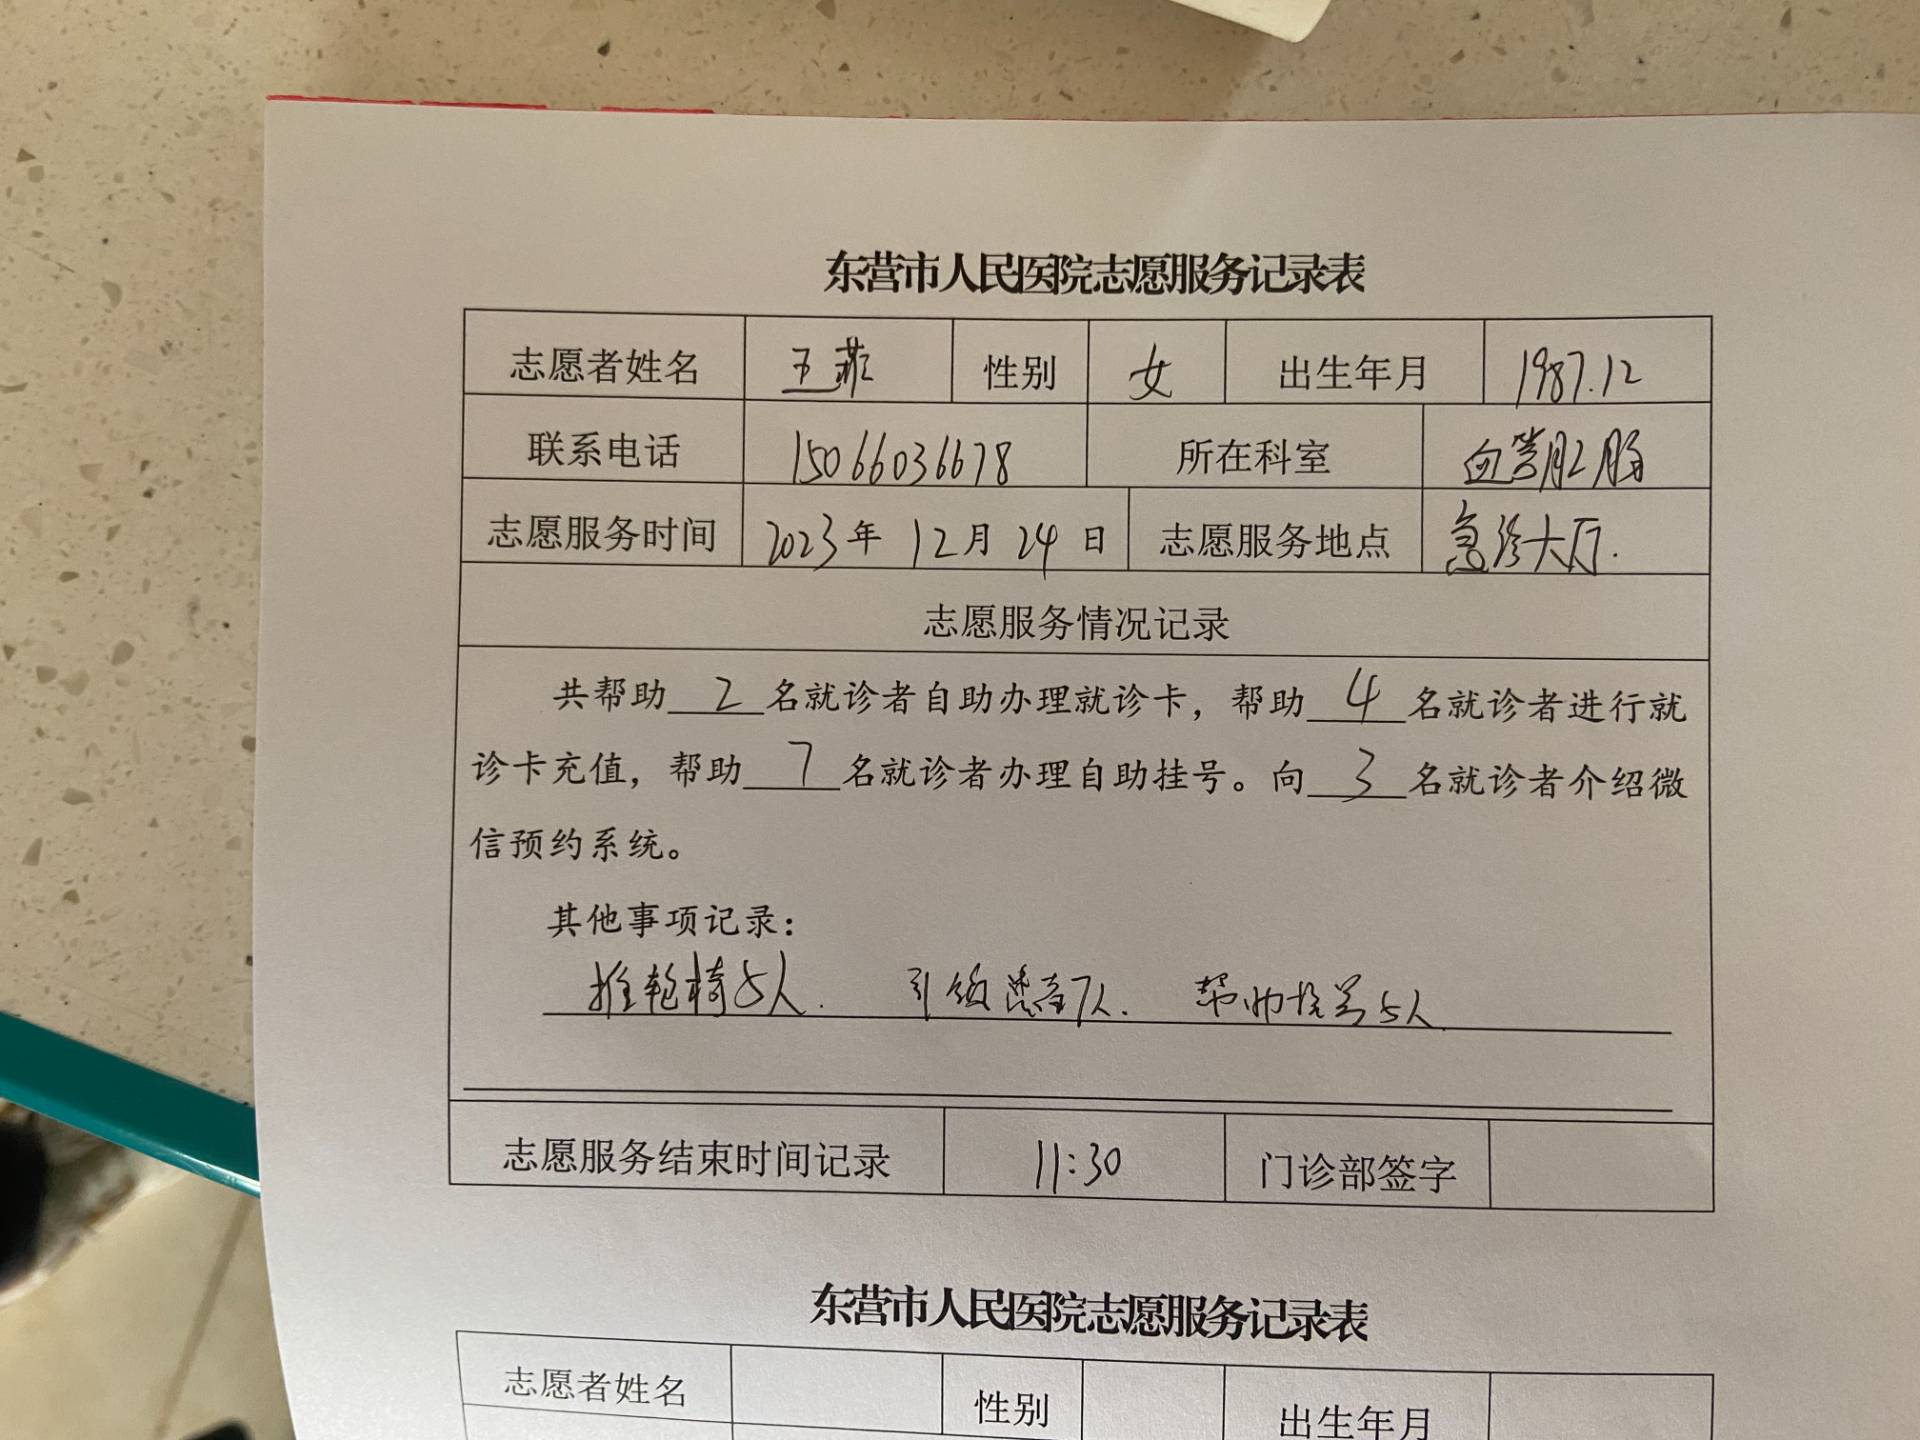 东营市人民医院志愿服务记录表
志愿者姓名 王菲 性别 女 出生年月 1987.12
联系电话 15066036678 所在科室 血管肛肠
志愿服务时间 2023年 12月 24日 志愿服务地点 急诊大厅.
志愿服务情况记录
共帮助 2 名就诊者自助办理就诊卡，帮助 4 名就诊者进行就
诊卡充值，帮助 7 名就诊者办理自助挂号。向 3 名就诊者介绍微
信预约系统。
其他事项记录：
推轮椅5人. 引领患者7人. 帮助挂号5人.
志愿服务结束时间记录 11:30 门诊部签字
东营市人民医院志愿服务记录表
志愿者姓名 性别 出生年月